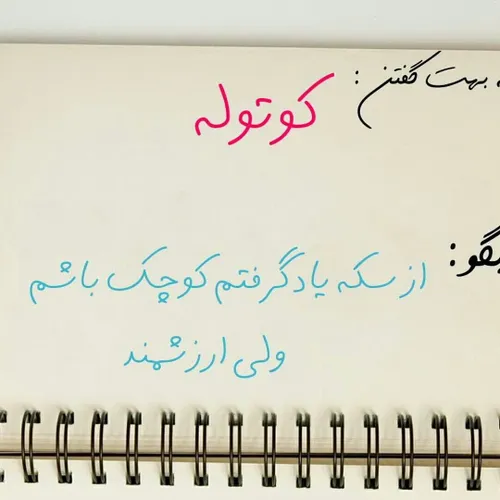 ه بهت گفتن :
کوتوله
بگو :
از سکه یاد گرفتم کوچک باشم
ولی ارزشمند